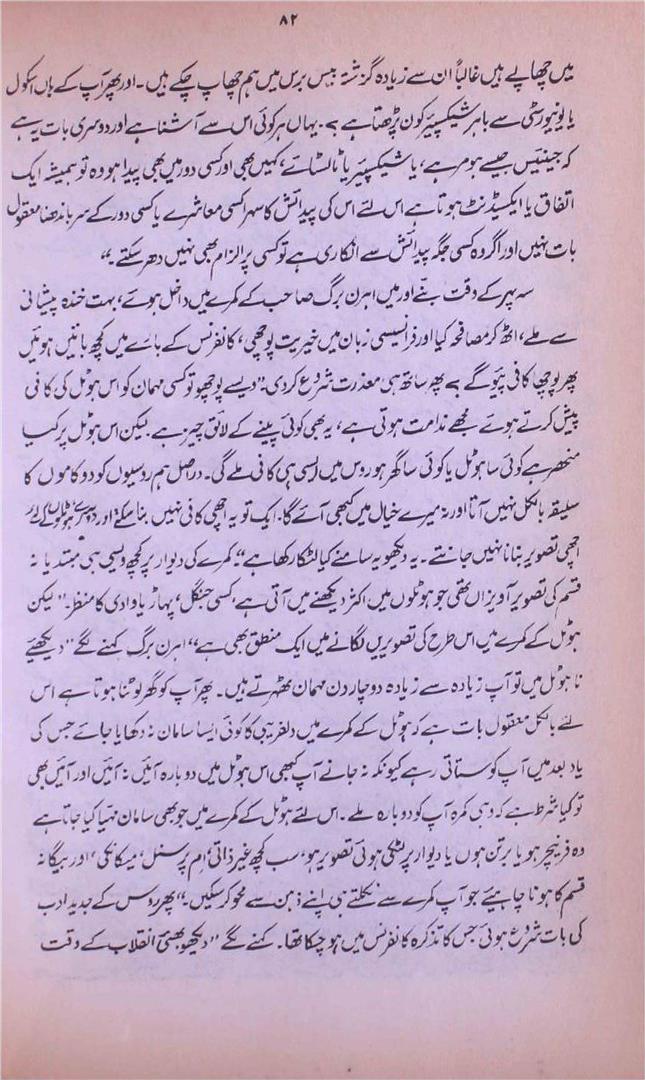 ۸۲
میں چھاپے ہیں غالباً ان سے زیادہ گزشتہ بیس برس میں ہم چھاپ چکے ہیں۔ اور پھر آپ کے ہاں اسکول
یا یونیورسٹی سے باہر شیکسپیئر کون پڑھتا ہے؟ یہاں ہر کوئی اس سے آشنا ہے اور دوسری بات یہ ہے
کہ جینیئس جیسے ہومر ہے، یا شیکسپیئر یا ٹالسٹائے، کہیں بھی اور کسی دور میں بھی پیدا ہو وہ تو ہمیشہ ایک
اتفاق یا ایکسیڈنٹ ہوتا ہے اس لئے اس کی پیدائش کا سہر کسی معاشرے یا کسی دور کے سر باندھنا معقول
بات نہیں اور اگر وہ کسی جگہ پیدائش سے انکاری ہے تو کسی پر الزام بھی نہیں دھر سکتے۔"
سہ پہر کے وقت بنّے اور میں اہرن برگ صاحب کے کمرے میں داخل ہوئے، بہت خندہ پیشانی
سے ملے، اٹھ کر مصافحہ کیا اور فرانسیسی زبان میں خیریت پوچھی، کانفرنس کے بارے میں کچھ باتیں ہوئیں
پھر پوچھا کافی پیؤ گے؟ پھر ساتھ ہی معذرت شروع کر دی۔ "ویسے پوچھو تو کسی مہمان کو اس ہوٹل کی کافی
پیش کرتے ہوئے مجھے ندامت ہوتی ہے، یہ بھی کوئی پینے کے لائق چیز ہے لیکن اس ہوٹل پر کیا
منحصر ہے کوئی سا ہوٹل یا کوئی سا گھر ہو روس میں ایسی ہی کافی ملے گی۔ دراصل ہم روسیوں کو دو کاموں کا
سلیقہ بالکل نہیں آتا اور نہ میرے خیال میں کبھی آئے گا۔ ایک تو یہ اچھی کافی نہیں بنا سکتے اور دوسرے ہوٹلوں کے لئے
اچھی تصویر بنانا نہیں جانتے۔ یہ دیکھو یہ سامنے کیا لٹکا رکھا ہے"۔ کمرے کی دیوار پر کچھ ویسی ہی مبتدیا نہ
قسم کی تصویر آویزاں تھی جو ہوٹلوں میں اکثر دیکھنے میں آتی ہے، کسی جنگل، پہاڑ یا وادی کا منظر۔ "لیکن
ہوٹل کے کمرے میں اس طرح کی تصویریں لگانے میں ایک منطق بھی ہے"، اہرن برگ کہنے لگے "دیکھئے
نا ہوٹل میں تو آپ زیادہ سے زیادہ دو چار دن مہمان ٹھہرتے ہیں۔ پھر آپ کو گھر لوٹنا ہوتا ہے اس
لئے بالکل معقول بات ہے کہ ہوٹل کے کمرے میں دلفریبی کا کوئی ایسا سامان نہ دکھایا جائے جس کی
یاد بعد میں آپ کو ستاتی رہے کیونکہ نہ جانے آپ کبھی اس ہوٹل میں دوبارہ آئیں نہ آئیں اور آئیں بھی
تو کیا شرط ہے کہ وہی کمرہ آپ کو دوبارہ ملے۔ اس لئے ہوٹل کے کمرے میں جو بھی سامان مہیا کیا جاتا ہے
وہ فرنیچر ہو یا برتن ہوں یا دیوار پر لٹکی ہوئی تصویر ہو، سب کچھ غیر ذاتی، ام پرسنل، میکانکی، اور بیگانہ
قسم کا ہونا چاہیئے جو آپ کمرے سے نکلتے ہی اپنے ذہن سے محو کر سکیں۔" پھر روس کے جدید ادب
کی بات شروع ہوئی جس کا تذکرہ کانفرنس میں ہو چکا تھا۔ کہنے لگے "دیکھو بھئی انقلاب کے وقت